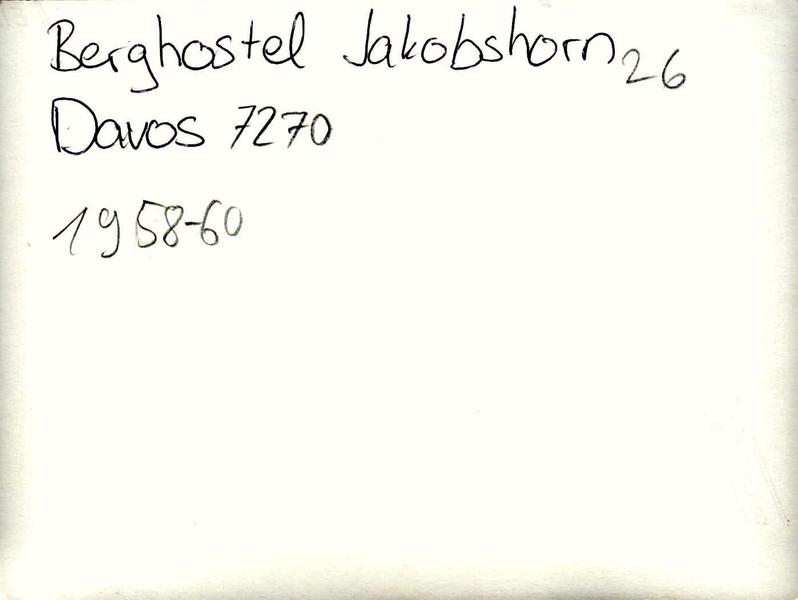 Berghostel Jakobshorn 26
Davos 7270
1958-60